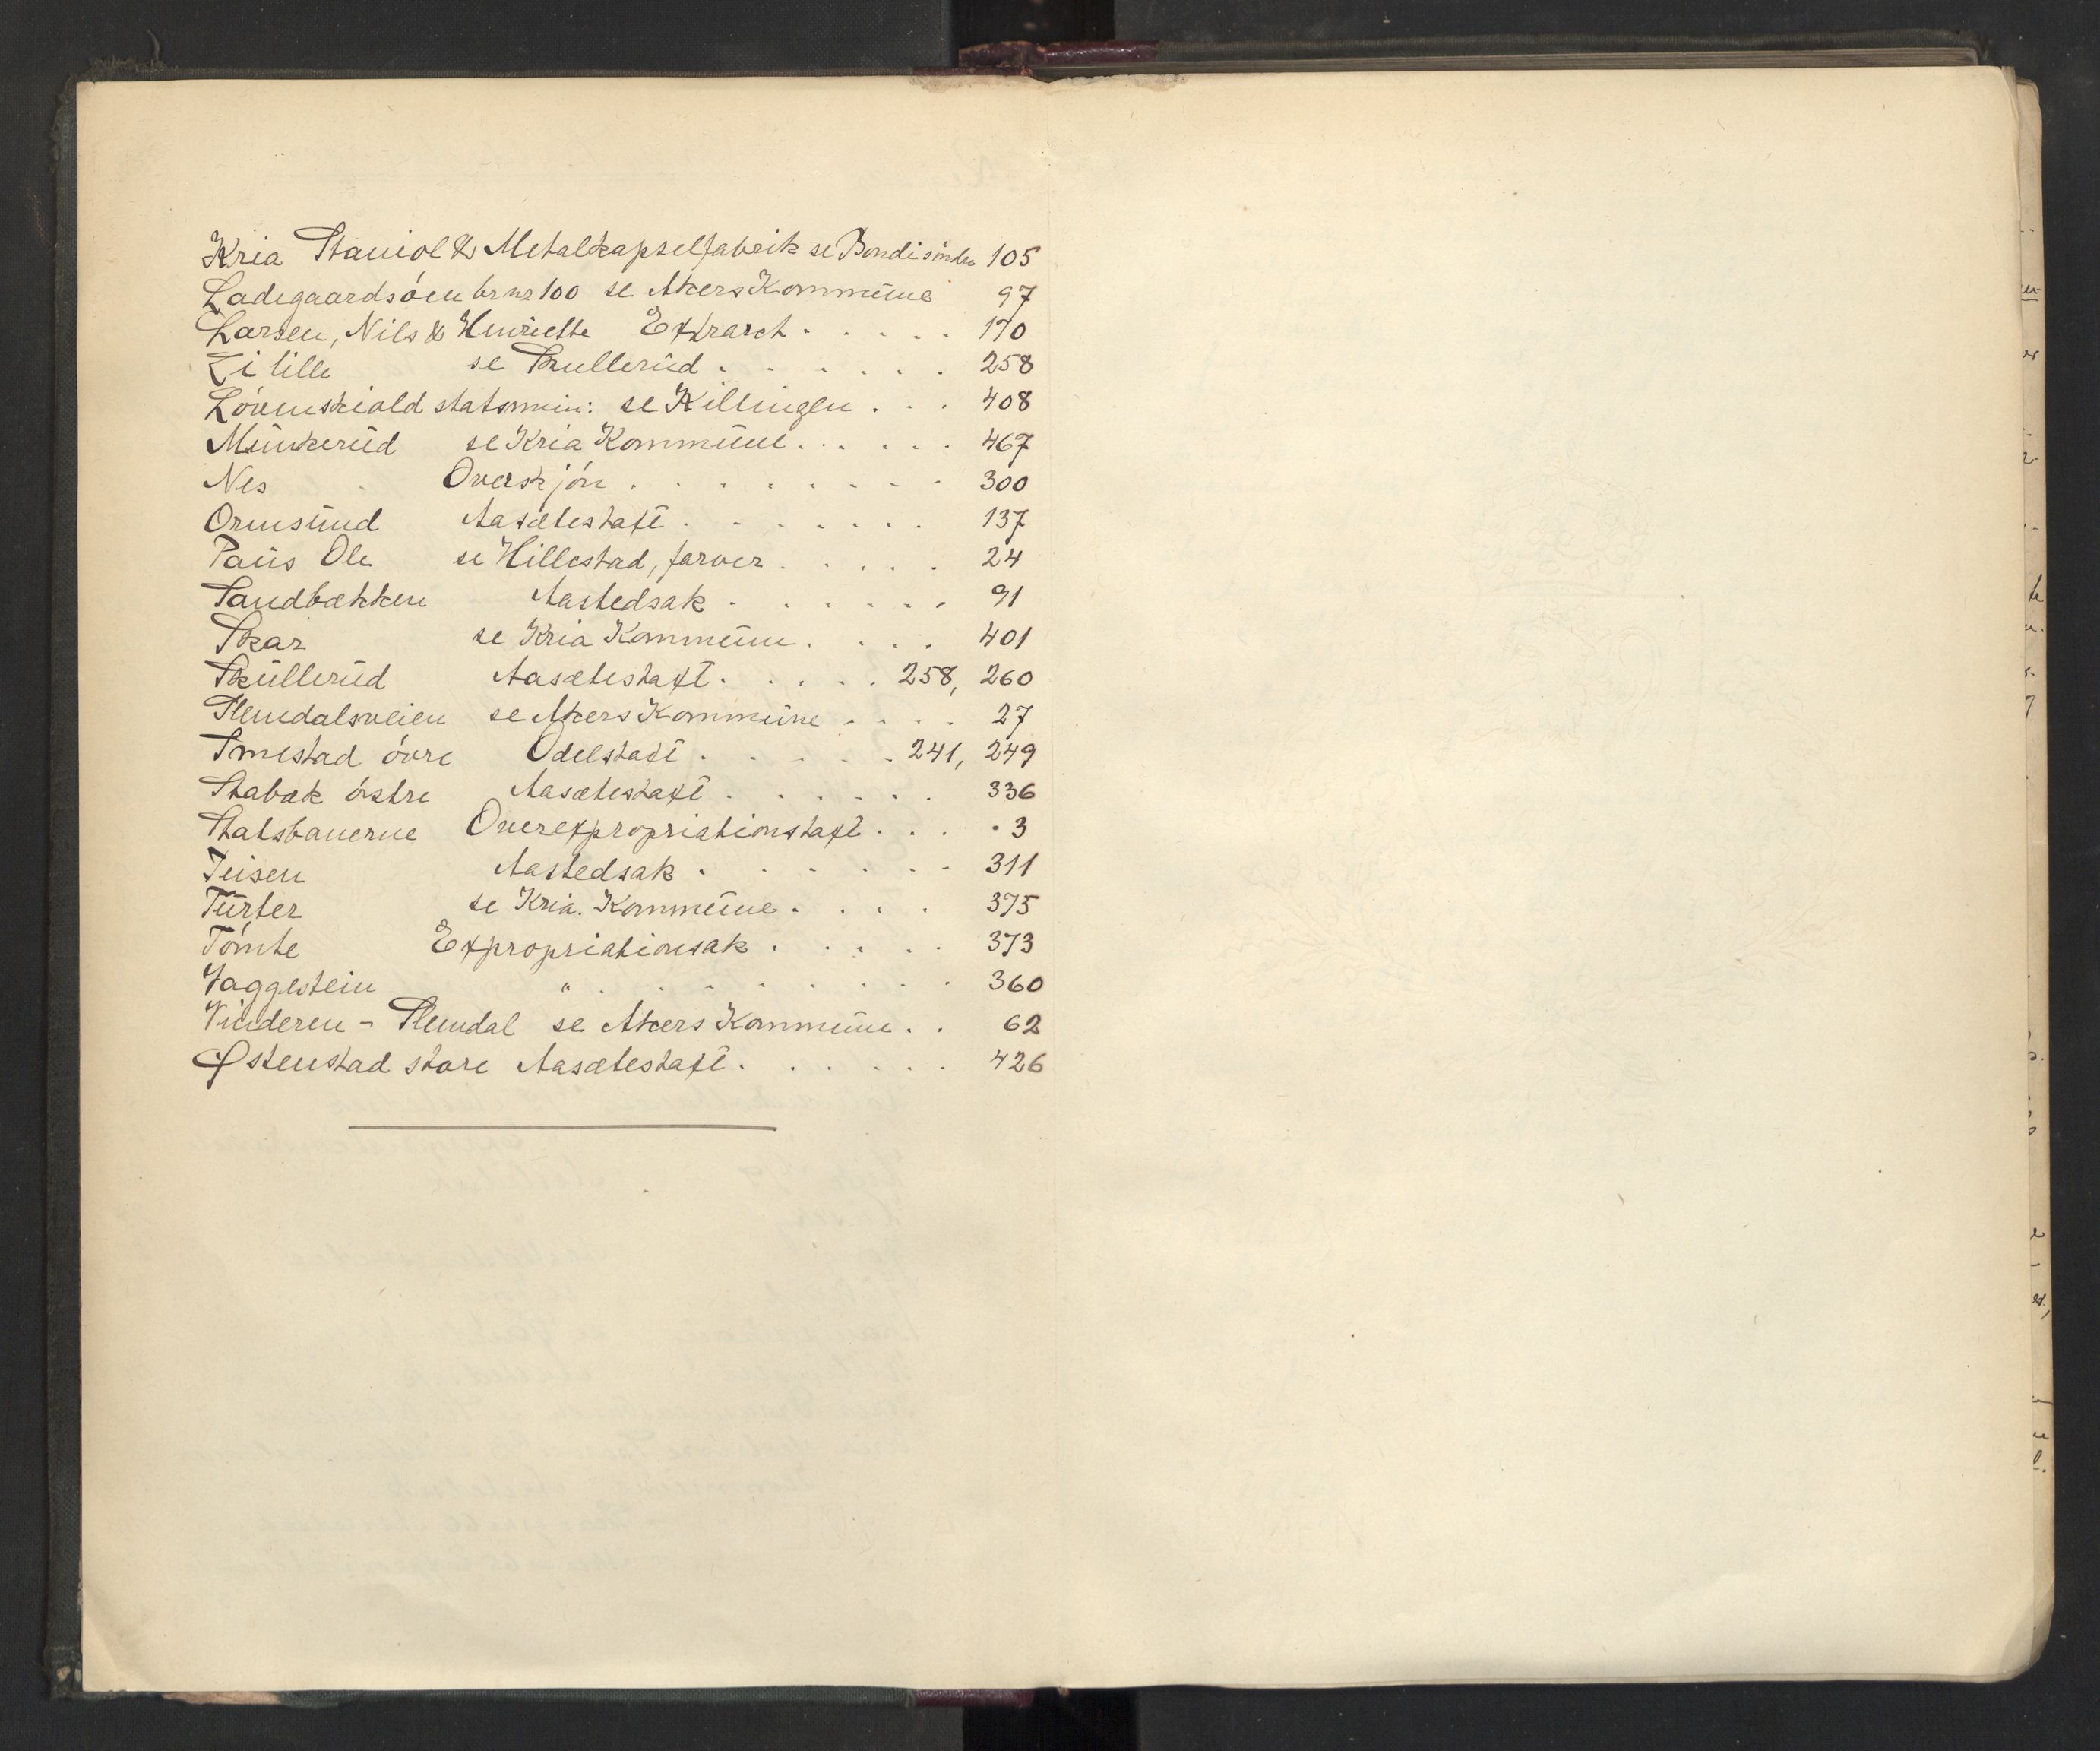 Kria Staniol & Metalkapselfabrik se Bondi söndre 105
Ladegaardsöen br nr 100 se Akers Kommune 97
Larsen, Nils & Henriette Extraret . . . . . 170
Li lille se Skullerud . . . . . . . 258
Lövenskiold statsmin: se Killingen . . . 408
Munkerud se Kria Kommune . . . . . . 467
Nes Overskjön . . . . . . . . . 300
Ormsund Aasætestaxt . . . . . . . 137
Paus Ole se Hillestad, farver . . . . . 24
Sandbækken Aastedsak . . . . . . . 91
Skar se Kria Kommune . . . . . 401
Skullerud Aasætestaxt . . . . . 258, 260
Slemdalsveien se Akers Kommune . . . . 27
Smestad övre Odelstaxt . . . . . . 241, 249
Stabæk östre Aasætestaxt . . . . . . 336
Statsbanerne Overexpropriationstaxt . . . . 3
Teisen Aastedsak . . . . . . . 311
Turter se Kria. Kommune . . . . 375
Tömte Expropriationsak . . . . . 373
Vaggestein " . . . . . . . . . 360
Vinderen - Slemdal se Akers Kommune . . 62
Østenstad store Aasætestaxt . . . . . . 426